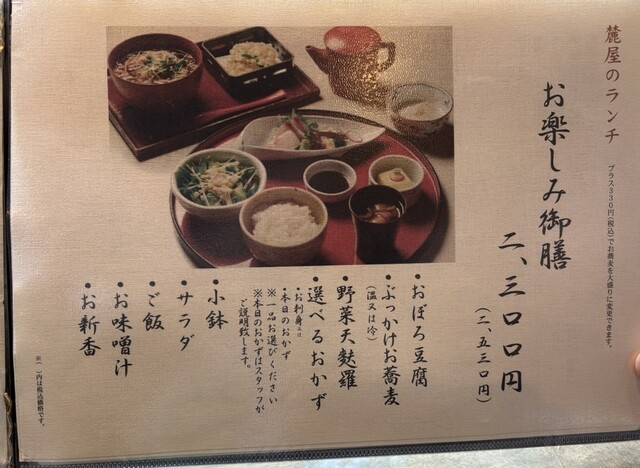 麓屋のランチ
プラス330円(税込)でお蕎麦を大盛りに変更できます。
お楽しみ御膳
二、三〇〇円
(二、五三〇円)
・おぼろ豆腐
・ぶっかけお蕎麦
(温又は冷)
・野菜天麩羅
・選べるおかず
・お刺身又は
・本日のおかず
※一品お選びください
※本日のおかずはスタッフが
ご説明致します。
・小鉢
・サラダ
・ご飯
・お味噌汁
・お新香
※( )内は税込価格です。